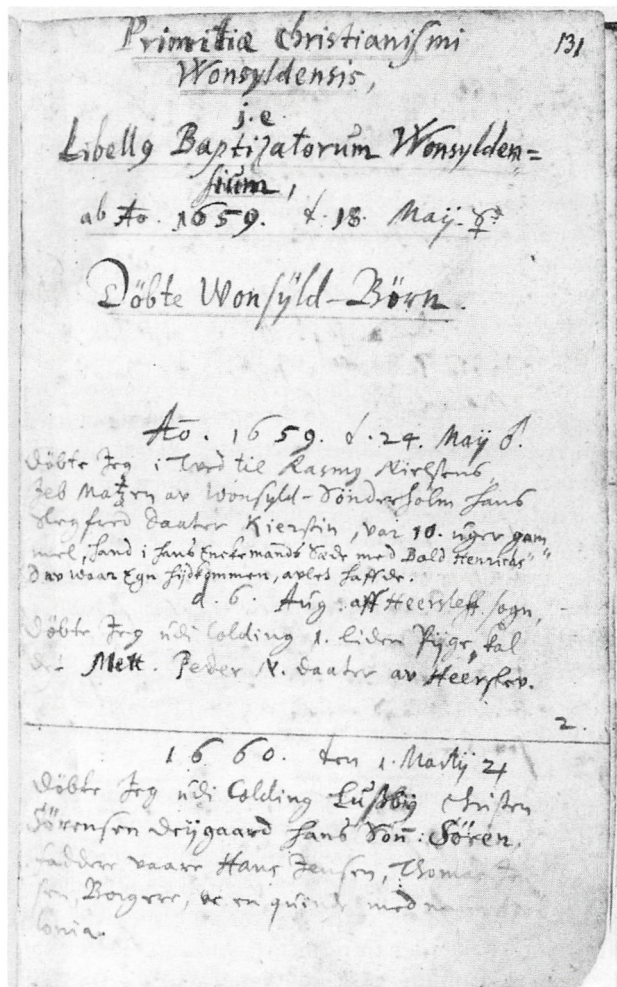 Primitiæ Christianismi
131
Wonsyldensis,
j.e.
Libellꝰ Baptizatorum Wonsylden=
sium,
ab Ao. 1659. d. 18. Maÿ. ☿
Döbte Wonsÿld-Börn.
Ao. 1659. d. 24. Maÿ ♂.
Döbte Jeg i Tved til Rasmꝰ Nielsens
Jeb Matzen av Wonsyld-Sönderholm hans
Slegfred Daater Kierstin, var 10. uger gam
mel, hand i hans Enkemands Sæde med Bold Henrichs
waar hijdkommen, avlet haffde.
d. 6. Aug: aff Heersleff sogn,
Döbte Jeg udi Colding 1. liden Pijge, kal
det Mett. Peder N. daater av Heerslev.
2.
1660. den 1. Martÿ ♃
Döbte Jeg udi Colding Christen
Sörensen deÿgaard hans Sön: Sören.
Faddere vaare Hans Jensen, Thomas
sen, Borgere, oc en qvinde med
lonia.